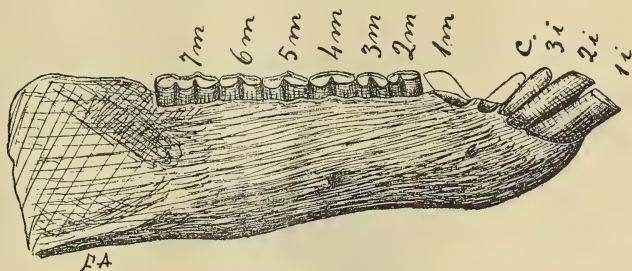 7m
6m
5m
4m
3m
2m
1m
C.
3i
2i
1i
FA